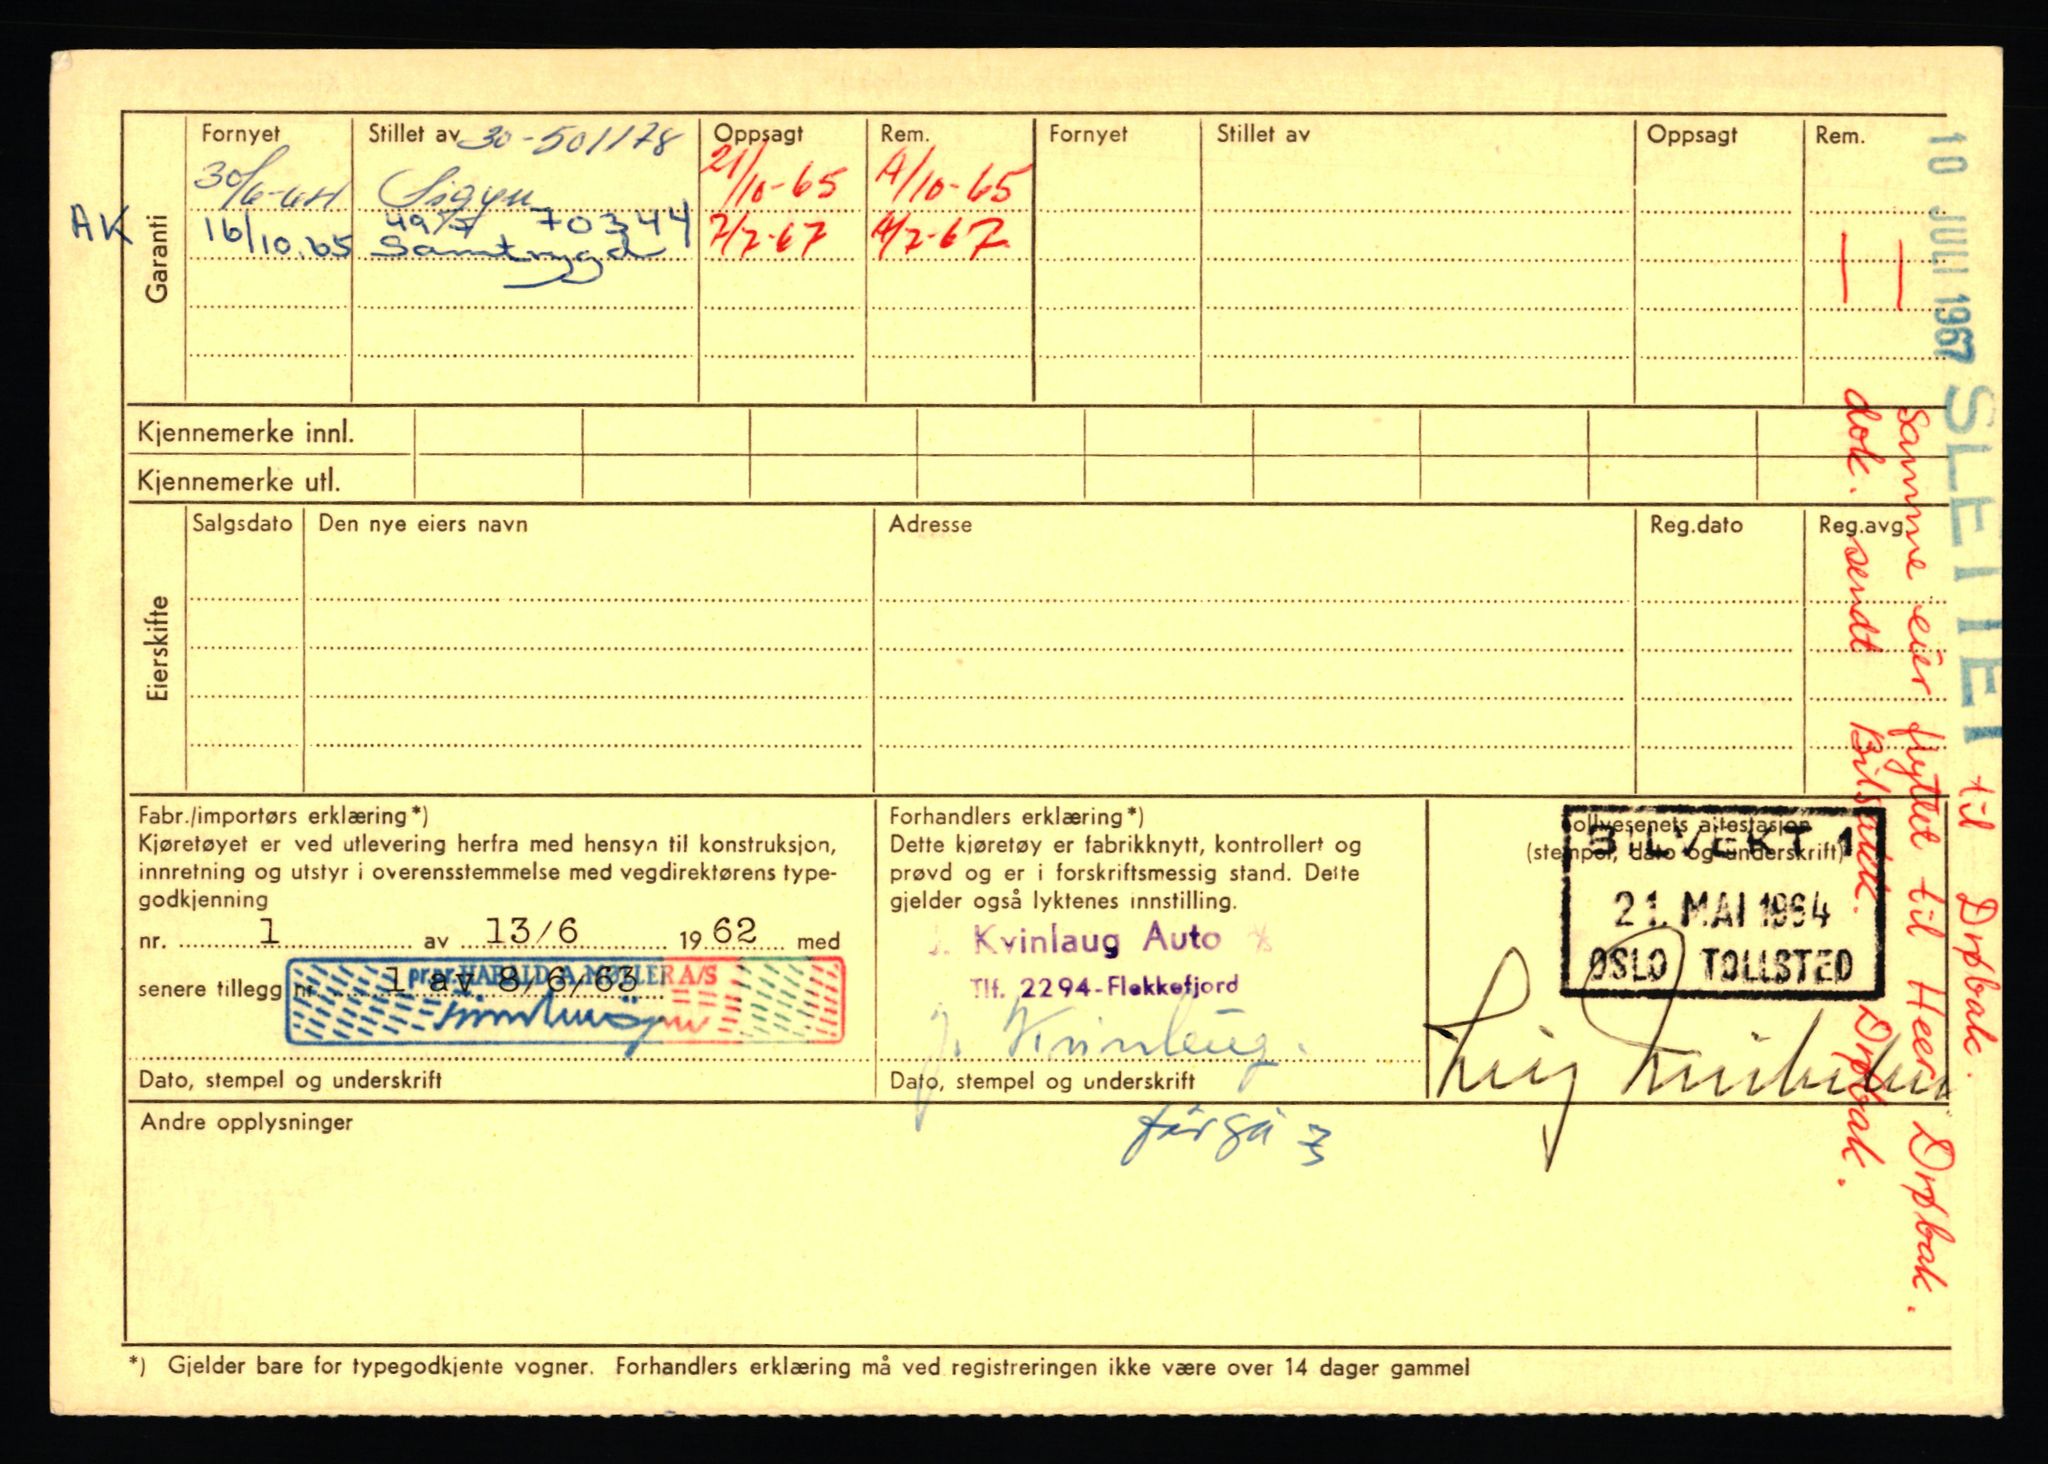 Fornyet Stillet av 30-501178 Oppsagt Rem. Fornyet Stillet av Oppsagt Rem.
30/6-64 Sigyn 21/10-65 A/10-65
AK 16/10.65 70344 7/2-67 A/2-67
Samtrygd
Garanti
Kjennemerke innl.
Kjennemerke utl.
Eierskifte
Salgsdato Den nye eiers navn Adresse Reg.dato Reg.avg.
Fabr./importørs erklæring*)
Kjøretøyet er ved utlevering herfra med hensyn til konstruksjon,
innretning og utstyr i overensstemmelse med vegdirektørens type-
godkjenning
nr. 1 av 13/6 1962 med
senere tillegg nr. 1 av 8/6/63
pr.pr. HARALD A. MØLLER A/S
Dato, stempel og underskrift
Forhandlers erklæring*)
Dette kjøretøy er fabrikknytt, kontrollert og
prøvd og er i forskriftsmessig stand. Dette
gjelder også lyktenes innstilling.
J. Kvinlaug Auto
Tlf. 2294-Flekkefjord
J. Kvinlaug.
Dato, stempel og underskrift
Tollvesenets attestasjon
(stempel, dato og underskrift)
BILVEKT 1
21. MAI 1964
OSLO TOLLSTED
Andre opplysninger
*) Gjelder bare for typegodkjente vogner. Forhandlers erklæring må ved registreringen ikke være over 14 dager gammel
10 JULI 1967
SLETTET til Drøbak.
Samme eier flyttet til Heer Drøbak.
dok. sendt Bilsakk. Drøbak.